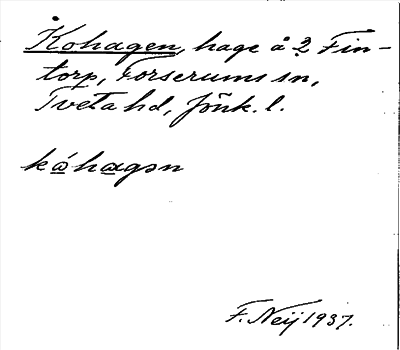 Kohagen, hage å 2 Fin-
torp, Forserums sn,
Tveta hd, Jönk. l.
kóhagən
F. Neij 1937.